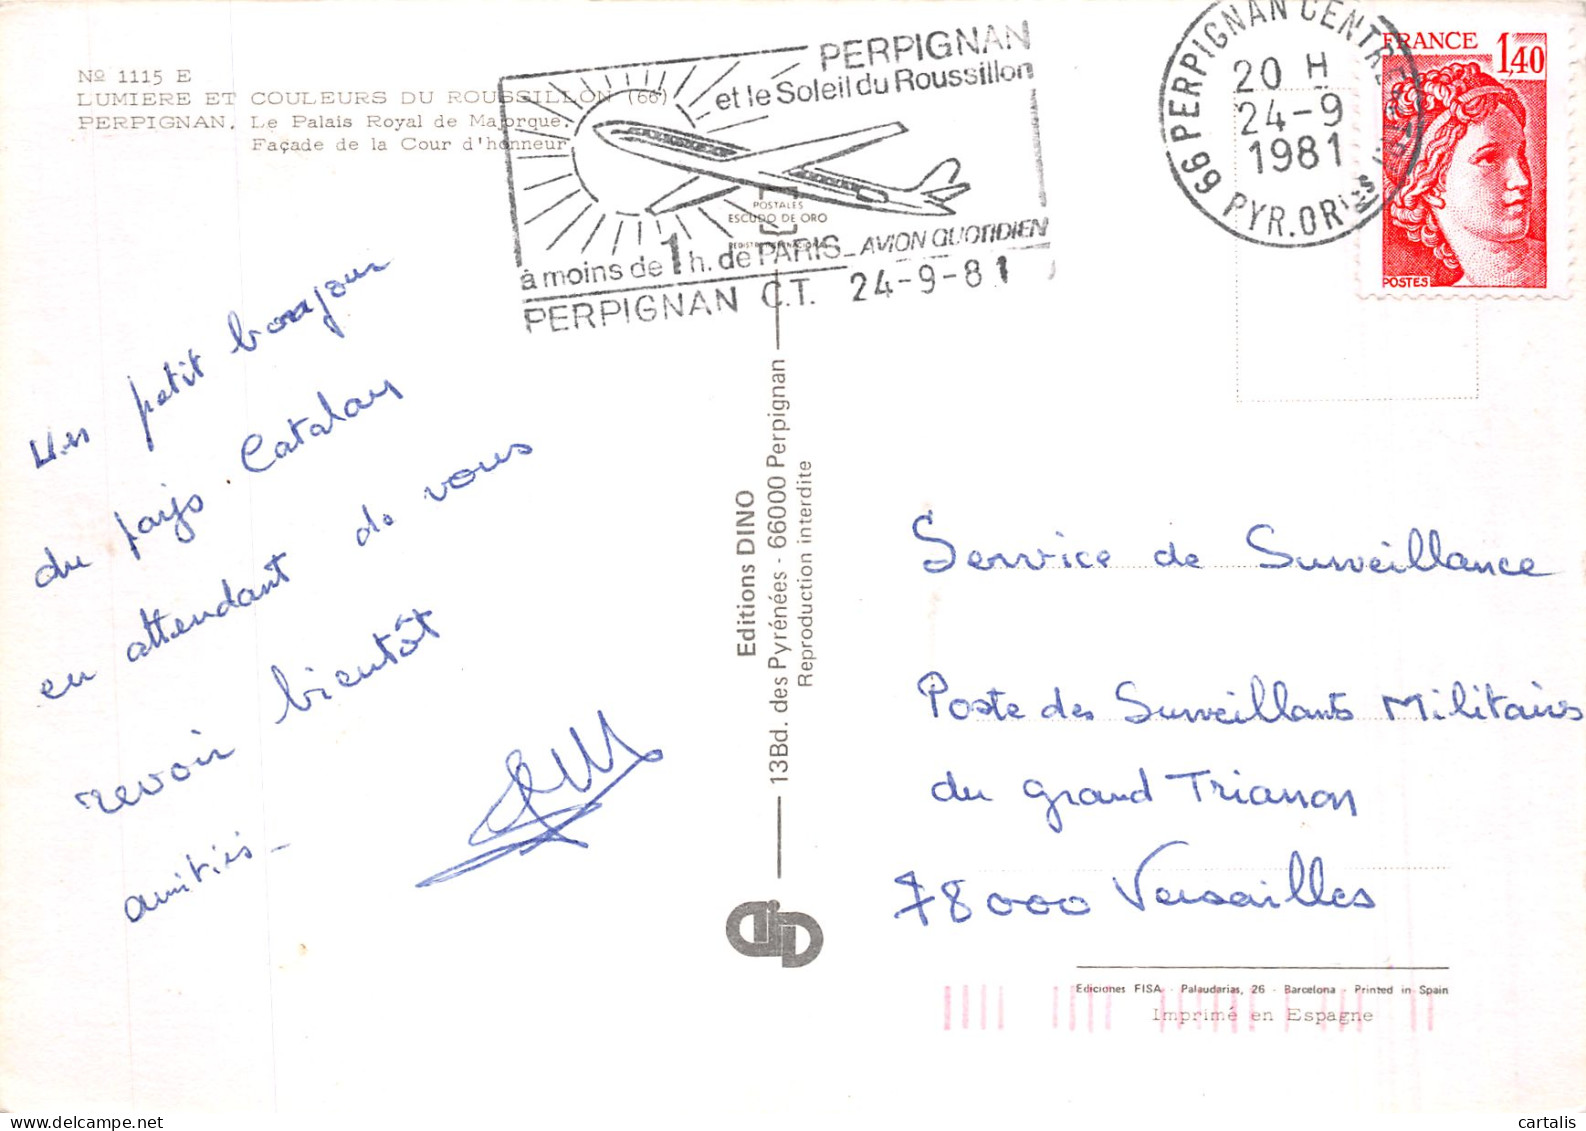 Nº 1115 E
LUMIERE ET COULEURS DU ROUSSILLON (66)
PERPIGNAN. Le Palais Royal de Majorque.
Façade de la Cour d'honneur
PERPIGNAN
et le Soleil du Roussillon
POSTALES
ESCUDO DE ORO
à moins de 1 h. de PARIS_ AVION QUOTIDIEN
PERPIGNAN C.T. 24-9-81
66 PERPIGNAN CENTRE
PYR.OR
20 H
24-9
1981
FRANCE 1,40
POSTES
Un petit bonjour
du pays Catalan
en attendant de vous
revoir bientôt
amitiés_
Editions DINO
13Bd. des Pyrénées - 66000 Perpignan
Reproduction interdite
Service de Surveillance
Poste des Surveillants Militaires
du grand Trianon
78000 Versailles
Ediciones FISA - Palaudarias, 26 - Barcelona - Printed in Spain
Imprimé en Espagne
cartalis